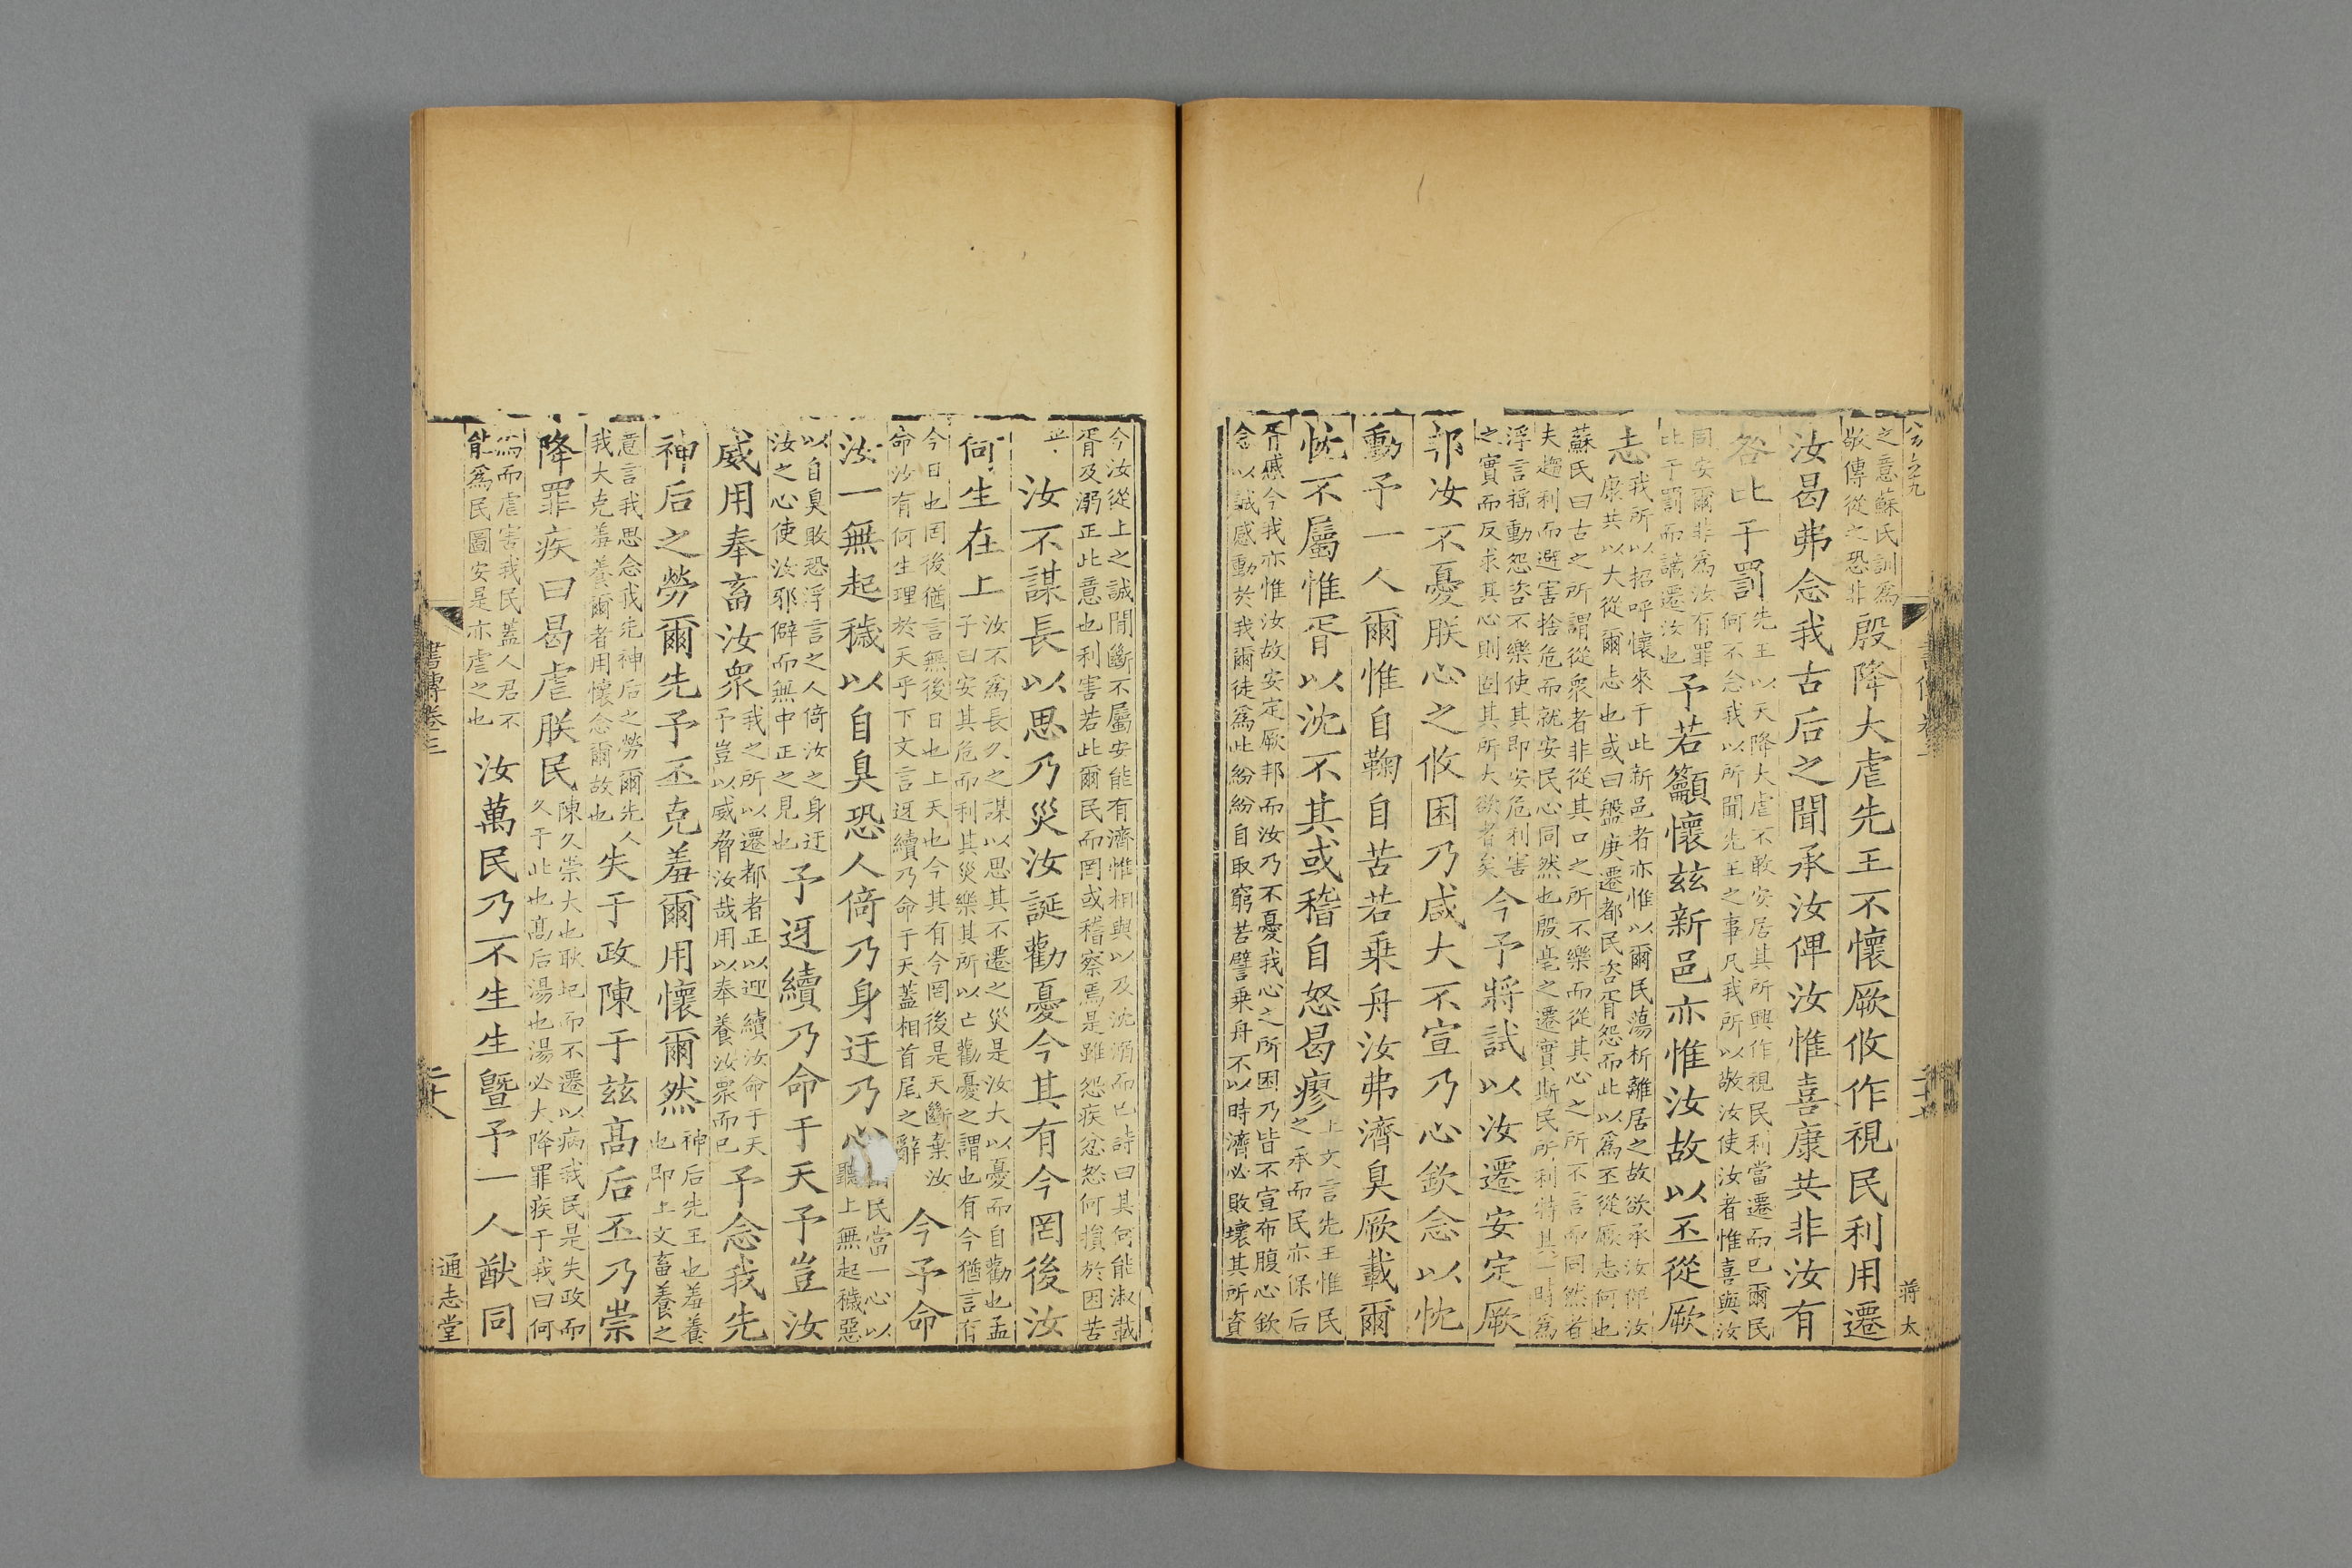 之意蘇氏訓爲
敬傳從之恐非
殷降大虐先王不懷厥攸作視民利用遷
汝曷弗念我古后之聞承汝俾汝惟喜康共非汝有
咎比于罰
先王以天降大虐不敢安居其所興作視民利當遷而已爾民
何不念我以所聞先王之事凡我所以敬汝使汝者惟喜與汝
同安爾非爲汝有罪
比于罰而謫遷汝也
予若籲懷茲新邑亦惟汝故以丕從厥
志
我所以招呼懷來于此新邑者亦惟以爾民蕩析離居之故欲承汝俾汝
康共以大從爾志也或曰盤庚遷都民咨胥怨而此以爲丕從厥志何也
蘇氏曰古之所謂從衆者非從其口之所不樂而從其心之所不言而同然者
夫趨利而避害捨危而就安民心同然也殷亳之遷實斯民所利特其一時爲
浮言搖動怨咨不樂使其即安危利害
之實而反求其心則固其所大欲者矣
今予將試以汝遷安定厥
邦汝不憂朕心之攸困乃咸大不宣乃心欽念以忱
動予一人爾惟自鞠自苦若乗舟汝弗濟臭厥載爾
忱不屬惟胥以沈不其或稽自怒曷瘳
上文言先王惟民
之承而民亦保后
胥慼今我亦惟汝故安定厥邦而汝乃不憂我心之所困乃皆不宣布腹心欽
念以誠感動於我爾徒爲此紛紛自取窮苦譬乗舟不以時濟必敗壞其所資
書傳卷三
二十七
蔣太
今汝從上之誠間斷不屬安能有濟惟相與以及沈溺而已詩曰其何能淑載
胥及溺正此意也利害若此爾民而罔或稽察焉是雖怨疾忿怒何損於困苦
乎
汝不謀長以思乃災汝誕勸憂今其有今罔後汝
何生在上
汝不爲長久之謀以思其不遷之災是汝大以憂而自勸也孟
子曰安其危而利其災樂其所以亡勸憂之謂也有今猶言有
今日也罔後猶言無後日也上天也今其有今罔後是天斷棄汝
命汝有何生理於天乎下文言迓續乃命于天蓋相首尾之辭
今予命
汝一無起穢以自臭恐人倚乃身迂乃心
民當一心以
聽上無起穢惡
以自臭敗恐浮言之人倚汝之身迂
汝之心使汝邪僻而無中正之見也
予迓續乃命于天予豈汝
威用奉畜汝衆
我之所以遷都者正以迎續汝命于天
予豈以威脅汝哉用以奉養汝衆而已
予念我先
神后之勞爾先予丕克羞爾用懷爾然
神后先王也羞養
也即上文畜養之
意言我思念我先神后之勞爾先人
我大克羞養爾者用懷念爾故也
失于政陳于茲高后丕乃崇
降罪疾曰曷虐朕民
陳久崇大也耿圮而不遷以病我民是失政而
久于此也高后湯也湯必大降罪疾于我曰何
爲而虐害我民蓋人君不
能爲民圖安是亦虐之也
汝萬民乃不生生曁予一人猷同
書傳卷三
二十八
通志堂